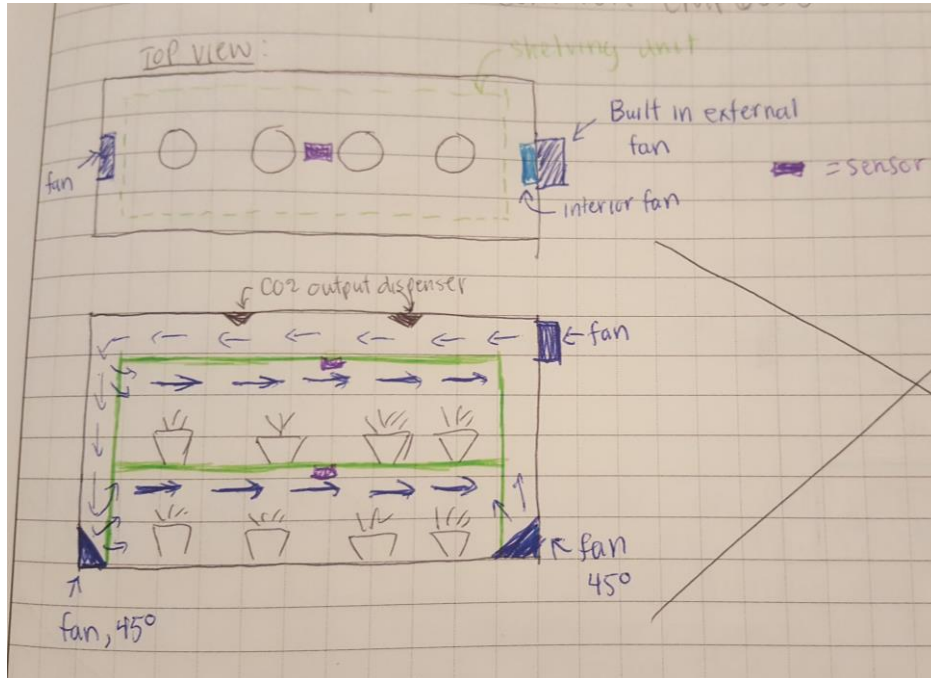 TOP VIEW:
shelving unit
Built in external
fan
fan
= sensor
interior fan
CO2 output dispenser
fan
fan
45°
fan, 45°